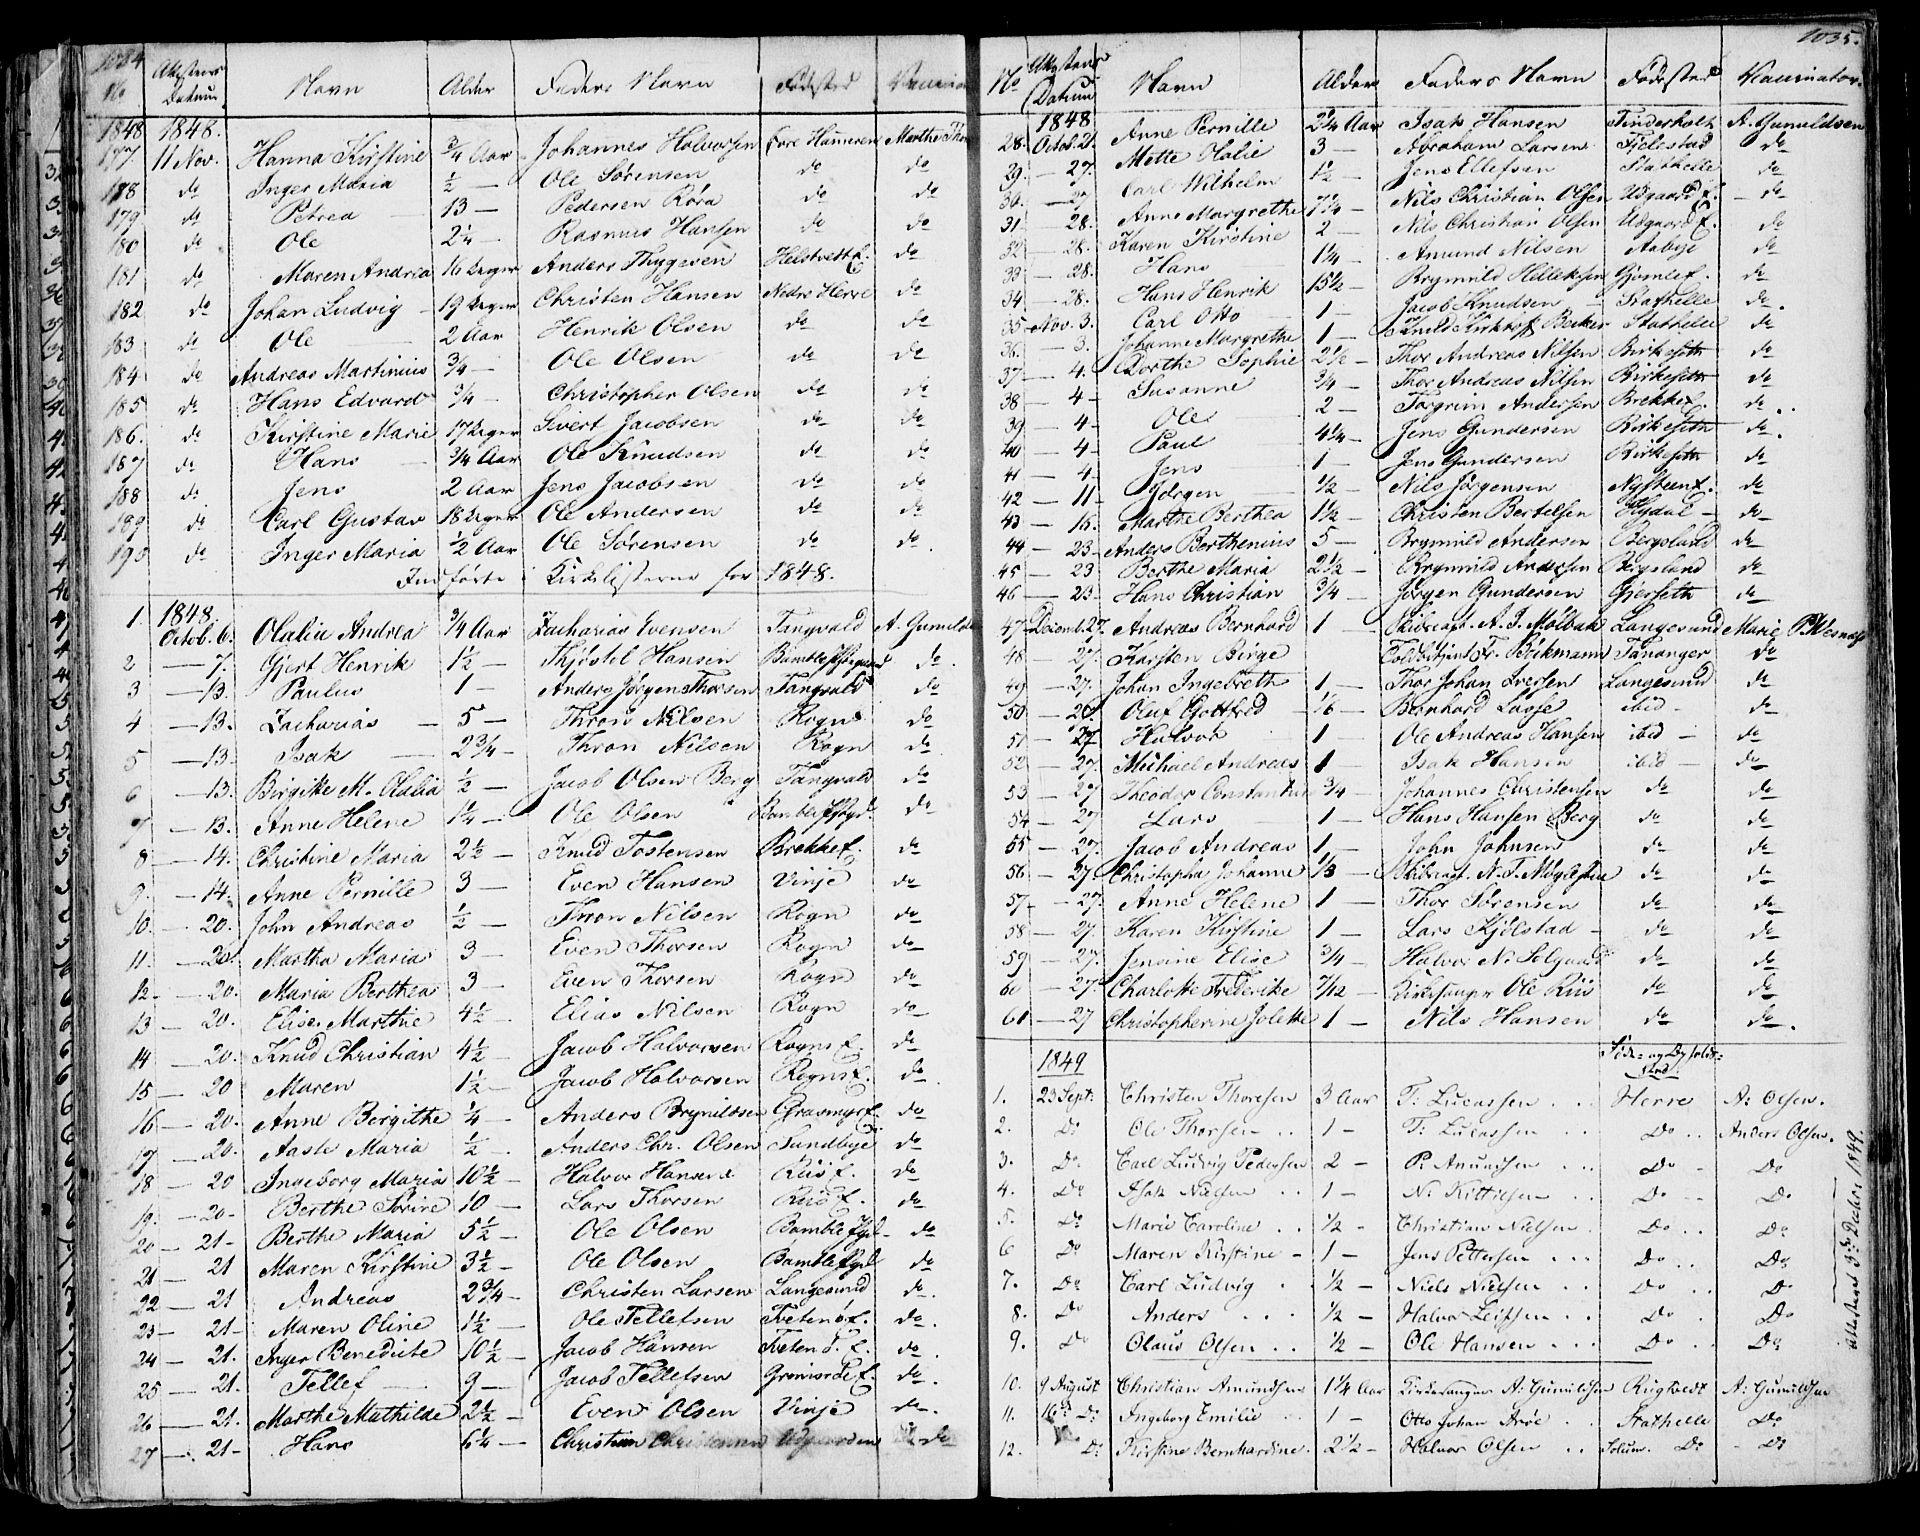 1034
No Attestens Datum Navn Alder Faders Navn Fødested Vaccinator
1848 1848.
177 11 Nov. Hanna Kirstine 3/4 Aar Johannes Halvorsen Marthe
178 do Inger Maria 1/2 — Ole Sørensen do do
179 do Petrea — 13 — Pedersen Röra do do
180 do Ole 2 1/4 — Rasmus Hansen do do
181 do Maren Andrea 16 Uger Anders Thygesen Helstvedt E. do
182 do Johan Ludvig — 19 Uger Christen Hansen Nedre Herre do
183 do Ole 2 Aar Henrik Olsen do do
184 do Andreas Martinius 3/4 — Ole Olsen do do
185 do Hans Edvard 3/4 — Christopher Olsen do do
186. do Kirstine Marie 17 Uger Sivert Jacobsen do do
187 do Hans — 3/4 Aar Ole Knudsen do do
188 do Jens 2 Aar Jens Jacobsen do do
189 do Carl Gustav 18 Uger Ole Andersen do do
190 do Inger Maria 1/2 Aar Ole Sørensen do do.
Indførte i Kirkelisterne for 1848.
1. 1848. Octob. 6. Olalia Andrea 3/4 Aar Zacharias Evensen Tangvald A. Gunulds
2 — 7. Gjert Henrik 1 1/2 — Thjöstel Hansen do.
3 — 13. Paulus 1 — Anders Jörgen Thorsen Tangvald do
4 — 13. Zacharias — 5 — Thron Nilsen Rogn do
5 — 13. Isak — 2 3/4 — Thron Nilsen Rogn do
6 — 13. Birgitte M. Olalia 1/2 — Jacob Olsen Berg Tangvald do
7 — 13. Anne Helene 1 1/4 — Ole Olsen do
8 — 14. Christine Maria 2 1/2 — Knud Tostensen Brekke E. do
9. — 14. Anne Pernille 3 — Even Hansen Vinje do
10. — 20. John Andreas 1/2 — Thron Nilsen Rogn do
11. — 20. Martha Maria 3 — Even Thorsen Rogn do
12 — 20. Maria Berthea 3 — Even Thorsen Rogn do
13 — 20. Elise Marthie 4 1/2 — Elias Nilsen Rogn do
14 — 20. Knud Christian 4 1/2 — Jacob Halvorsen Rogns E. do
15 — 20 Maren 1 1/2 — Jacob Halvorsen Rogns E. do
16 — 20. Anne Bergithe 1/4 — Anders Brynildsen Grasmyr E. do
17 — 20. Aaste Maria 1/2 — Anders Chr. Olsen Sundbye do
18 — 20 Ingeborg Maria 10 1/2 — Halvor Hansen Riis E. do
19. — 20. Berthe Sörine 10 — Lars Thorsen Riis E. do
20 — 21. Berthe Maria 5 1/2 — Ole Olsen do
21 — 21 Maren Kirstine 3 1/2 — Ole Olsen do
22 — 21 Andreas 2 3/4 — Christen Larsen Langesund do.
23 — 21 — Maren Oline 1 1/2 — Ole Tellefsen Tveten ö. E. do.
24 — 21. Inger Benedicte 10 1/2 — Jacob Hansen Tveten Ö. E. do.
25 — 21. Tellef — 9 — Jacob Tellefsen do.
26 — 21. Marthe Mathilde 2 1/2 — Even Olsen Vinje do.
27 — 21 — Hans 6 1/4 — Christian Christensen do
1035.
No Attestens Datum Navn Alder Faders Navn Fødested Vaccinator.
1848
28. Octob. 21. Anne Pernille 2 1/4 Aar Isak Hansen Finderholt A. Gunuldsen
29. — 27. Mette Olalie 3 — Abraham Larsen Fjelestad do
30. — 27 Carl Wilhelm 1 1/2 — Jens Ellefsen Stathelle do
31 — 28. Anne Margrethe 7 1/4 — Nils Christian Olsen Udgaard E. do
32 — 28. Karen Kirstine 2 — Nils Christian Olsen Udgaard E. do
33 — 28. Hans 1 1/4 — Amund Nilsen Aabye do
34 — 28. Hans Henrik 15 1/2 — Brynuld Gjömle E. do
35 Nov. 3. Carl Otto — 1 — Jacob Knudsen Stathelle do.
36. — 3. Johanne Margrethe 1 — Knud Kirkhoff Becker Stathelle do
37 — 4. Dorthe Sophie 2 1/2 — Thor Andreas Nilsen Birkeseth do
38 — 4 — Susanne 3/4 — Thor Andreas Nilsen Birkeseth do
39 — 4 — Ole 2 — Torgrim Andersen Brekke E. do.
40 — 4 — Paul 4 1/4 — Jens Gundersen Birkeseth do.
41 — 4 — Jens 1 — Jens Gundersen Birkeseth do
42 — 11 — Jörgen 1/2 — Nils Jörgensen Nysteen E. do
43 — 15. Marthe Berthea 1 1/2 — Christen Bertelsen Hydal — do
44 — 23 — Anders Berthenius 5 — Brynuld Andersen Bergsland do
45 — 23 Berthe Maria 2 1/2 — Brynuld Andersen Bergsland do
46 — 23 — Hans Christian 3/4 — Jörgen Gundersen Gjerseth do
47 Decemb. 27. Andreas Bernhard 1 — Skibscapt. A. J. Mölbak Langesund Marie P. Wesnæs
48 — 27. Karsten Birge Fr. Böckmann Tananger do
49 — 27. Johan Ingebreth 1 — Thor Johan Iversen Langesund do
50 — 20. Oluf Gottfred 1/6 — Bernhard Lasse ibid — do
51 — 27 Halvor 1 — Ole Andreas Hansen ibid — do
52 — 27. Michael Andreas 1 — Isak Hansen ibid — do
53 — 27 Theodor Constantin 3/4 — Johannes Christensen do do
54 — 27 Lars 1 — Hans Hansen Berg do do
55 — 27. Jacob Andreas 1 — John Johnsen do do
56 — 27. Christopha Johanne 1/3 — Skibscapt. N. T. do do
57 — 27. Anne Helene 1 — Thor Sörensen do do
58 — 27. Karen Kirstine 1 — Lars Kjölstad — do do
59 — 27. Jensine Elise 3/4 — Halvor N. Solgaard do do
60 — 27. Charlotte Frederike 7/12 — Kirkesanger Ole Riis do do
61 — 27 Christopherine Jolette 1 — Nils Hansen do do.
1849
Føde- og Opholdssted.
1. 23 Sept: Christen Thoresen 3 Aar T: Lucassen . . Herre A: Olsen.
2. Do Ole Thorsen . . 1 — T: Lucassen . . Do . . Anders Olsen.
3. Do. Carl Ludvig Pedersen 2 — P: Amundsen . . Do — Do
4. Do Isak Nielsen . . 1 — N: Kittilsen . . Do . . Do.
5. Do Marie Caroline . . 1/2 — Christian Nielsen . Do . . Do
6 Do Maren Kirstine — 1 — Jens Pettersen . . . Do . . Do.
7. Do Carl Ludvig . 1/2 — Niels Nielsen . . Do . . Do
8. Do Anders . . 1/2 — Halvor Leifsen . . Do . Do
9. Do Olaus Olsen . . 1/2 — Ole Hansen . . . Do . . Do
10. 9 August Christian Amundsen 1 1/4 Aar Kirkesanger A: Gunuldsen Rugtvedt A: Gunuldsen
11. 16de Do. Ingeborg Emilie . . 1 — Otto Johan Aröe . Stathelle Do
12. Do: Kirstine Bernhardine. 2 1/2 — Halvor Olsen . . Solum. Do — Do
attesteret 3die Decbr. 1849.